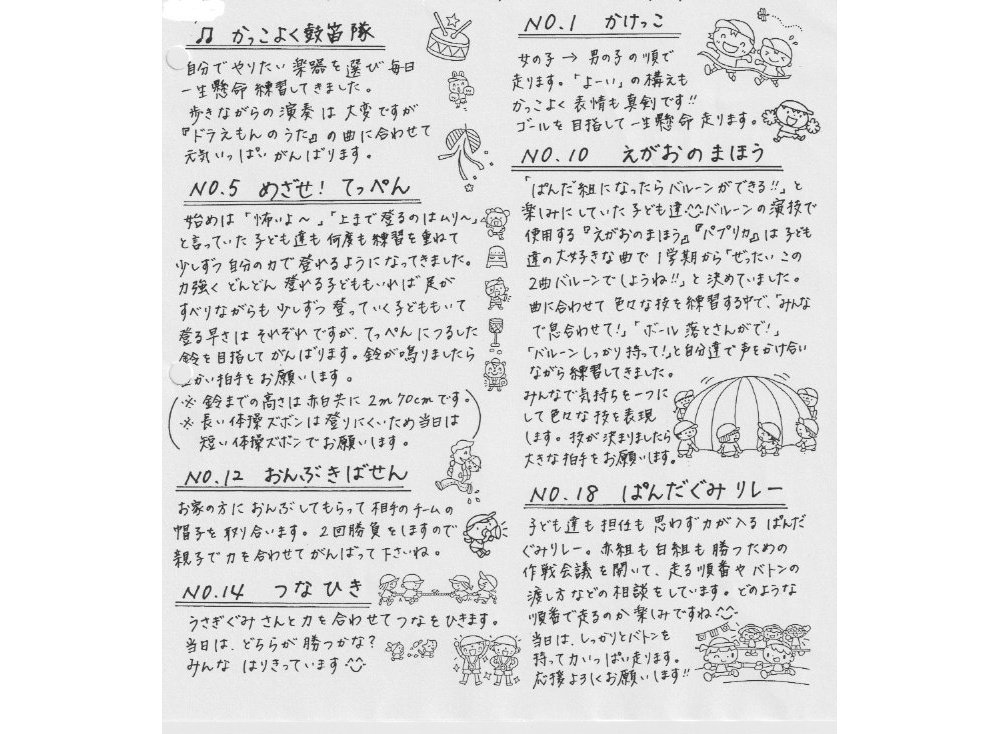 ♫ かっこよく鼓笛隊
自分でやりたい楽器を選び毎日
一生懸命練習してきました。
歩きながらの演奏は大変ですが
『ドラえもんのうた』の曲に合わせて
元気いっぱいがんばります。
NO.5 めざせ! てっぺん
始めは「怖いよ〜」「上まで登るのはムリ〜」
と言っていた子ども達も何度も練習を重ねて
少しずつ自分の力で登れるようになってきました。
力強くどんどん登れる子どももいれば足が
すべりながらも少しずつ登っていく子どももいて
登る早さはそれぞれですが、てっぺんにつるした
鈴を目指してがんばります。鈴が鳴りましたら
かい拍手をお願いします。
(※ 鈴までの高さは赤白共に2m70cmです。
※ 長い体操ズボンは登りにくいため当日は
短い体操ズボンでお願いします。)
NO.12 おんぶきばせん
お家の方におんぶしてもらって相手のチームの
帽子を取り合います。2回勝負をしますので
親子で力を合わせてがんばって下さいね。
NO.14 つなひき
うさぎぐみさんと力を合わせてつなをひきます。
当日は、どちらが勝つかな?
みんなはりきっています
NO.1 かけっこ
女の子→男の子の順で
走ります。「よーい」の構えも
かっこよく表情も真剣です!!
ゴールを目指して一生懸命走ります。
NO.10 えがおのまほう
「ぱんだ組になったらバルーンができる!!」と
楽しみにしていた子ども達 バルーンの演技で
使用する『えがおのまほう』『パプリカ』は子ども
達の大好きな曲で1学期から「ぜったいこの
2曲バルーンでしようね!!」と決めていました。
曲に合わせて色々な技を練習する中で、「みんな
で息合わせて!」「ボール落とさんがで!」
「バルーンしっかり持って!」と自分達で声をかけ合い
ながら練習してきました。
みんなで気持ちを一つに
して色々な技を表現
します。技が決まりましたら
大きな拍手をお願いします。
NO.18 ぱんだぐみリレー
子ども達も担任も思わず力が入るぱんだ
ぐみリレー。赤組も白組も勝つための
作戦会議を開いて、走る順番やバトンの
渡し方などの相談をしています。どのような
順番で走るのか楽しみですね
当日は、しっかりとバトンを
持って力いっぱい走ります。
応援よろしくお願いします!!